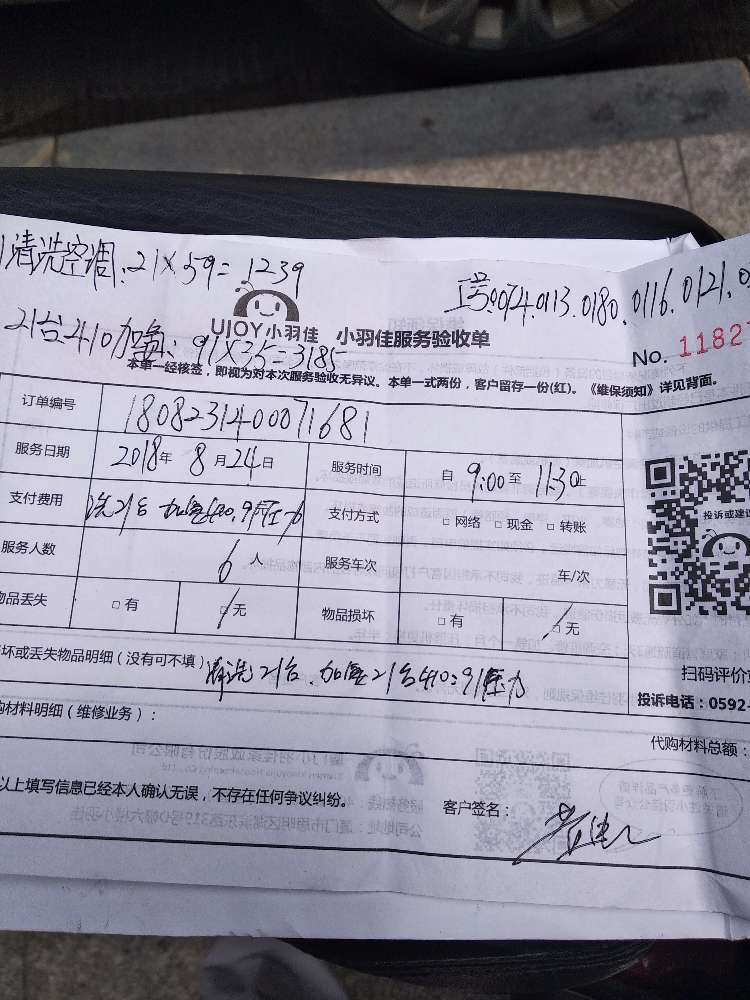 清洗空调:21×59=1239
工号:0074.0113.0180.0116.0121.0
21台410加氟:91×35=3185
UJOY小羽佳 小羽佳服务验收单
No. 1182
本单一经核签,即视为对本次服务验收无异议。本单一式两份,客户留存一份(红)。《维保须知》详见背面。
订单编号 1808231400071681
服务日期 2018年 8月24日 服务时间 自 9:00 至 11:30止
支付费用 洗21台 加氟410.91压力 支付方式 □网络 □现金 □转账
投诉或建议
服务人数 6人 服务车次 车/次
物品丢失 □有 □无 物品损坏 □有 □无
坏或丢失物品明细(没有可不填) 清洗21台.加氟21台410:91压力
扫码评价
投诉电话:0592-
购材料明细(维修业务):
代购材料总额:
以上填写信息已经本人确认无误,不存在任何争议纠纷。
客户签名: